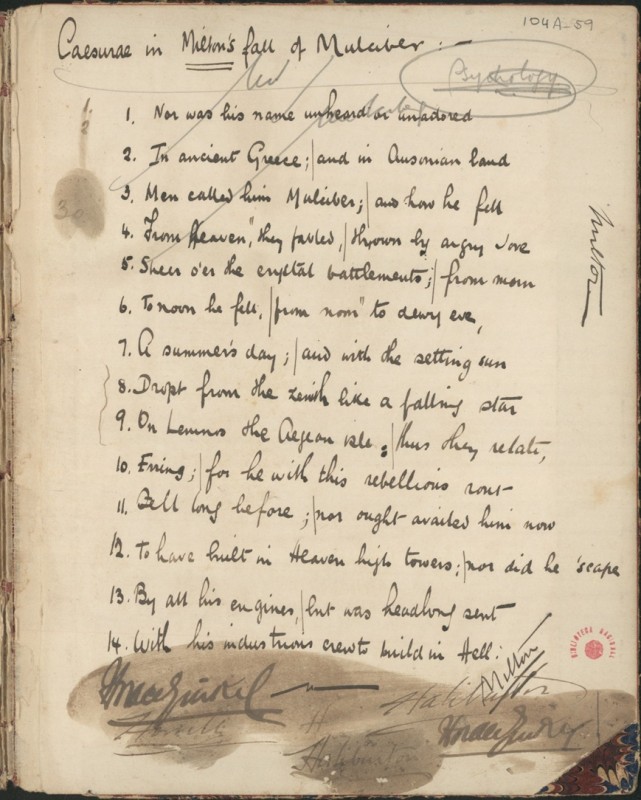 104A-59
Caesurae in Milton's fall of Mulciber : —
Psychology
1. Nor was his name unheard or unadored
2. In ancient Greece; | and in Ausonian land
3. Men called him Mulciber; | and how he fell
4. From Heaven, they fabled, | thrown by angry Jove
5. Sheer o'er the crystal battlements; | from morn
6. To noon he fell, | from noon to dewy eve,
7. A summer's day; | and with the setting sun
8. Dropt from the zenith like a falling star
9. On Lemnos the Aegean isle: | thus they relate,
10. Erring; | for he with this rebellious rout
11. Fell long before; | nor ought availed him now
12. To have built in Heaven high towers; | nor did he 'scape
13. By all his engines, | but was headlong sent
14. With his industrious crew to build in Hell:
Milton
Milton
Haliburton
BIBLIOTECA NACIONAL